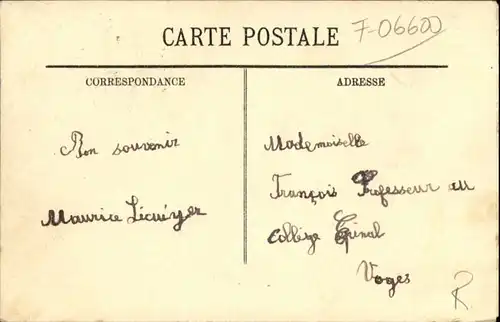 CARTE POSTALE
7-06600
CORRESPONDANCE
Bon souvenir
Maurice Lécuyer
ADRESSE
Mademoiselle
François Professeur au
Collège Epinal
Voges
R